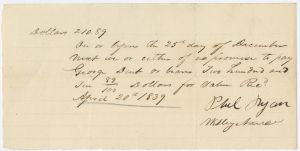 Dollars 210.89
On or before the 25th day of December
next we or either of us promise to pay
George Dent or bearer Two hundred and
Ten 89/100 Dollars for Value Recd
April 20th 1839
Phil Ryan